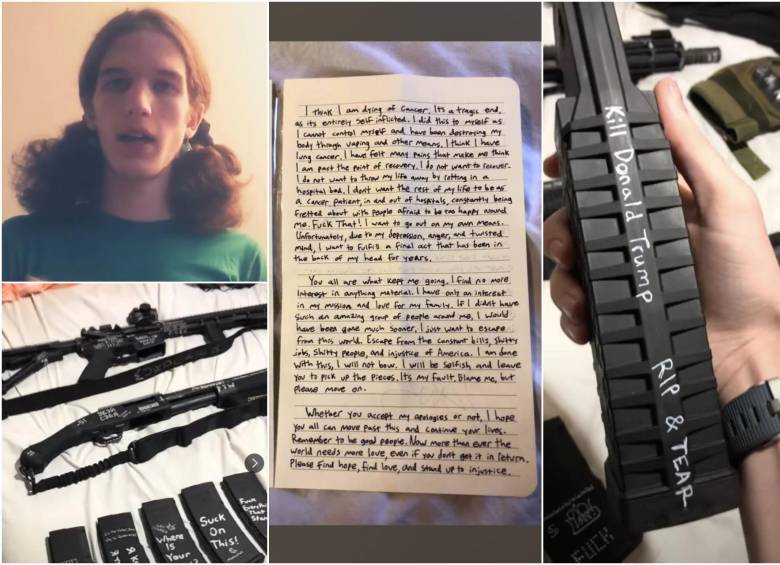 I think I am dying of cancer. Its a tragic end,
as its entirely self inflicted. I did this to myself as
I cannot control myself and have been destroying my
body through vaping and other means, I think I have
lung cancer. I have felt many pains that make me think
I am past the point of recovery. I do not want to recover.
I do not want to throw my life away by rotting in a
hospital bed. I dont want the rest of my life to be as
a cancer patient, in and out of hospitals, constantly being
fretted about with people afraid to be too happy around
me. Fuck That! I want to go out on my own means.
Unfortunately, due to my depression, anger, and twisted
mind, I want to fulfill a final act that has been in
the back of my head for years.
You all are what kept me going. I find no more
interest in anything material. I have only an interest
in my mission and love for my family. If I didnt have
such an amazing group of people around me, I would
have been gone much sooner. I just want to escape
from this world. Escape from the constant bills, shitty
jobs, shitty people, and injustice of America. I am done
with this, I will not bow. I will be selfish and leave
you to pick up the pieces. Its my fault, Blame me, but
please move on.
Whether you accept my apologies or not, I hope
you all can move past this and continue your lives.
Remember to be good people. Now more than ever the
world needs more love, even if you dont get it in return.
Please find hope, find love, and stand up to injustice.
Where
Is
Your
Suck
On
This!
Fuck
Everything
That
Kill Donald Trump
RIP & TEAR
FUCK